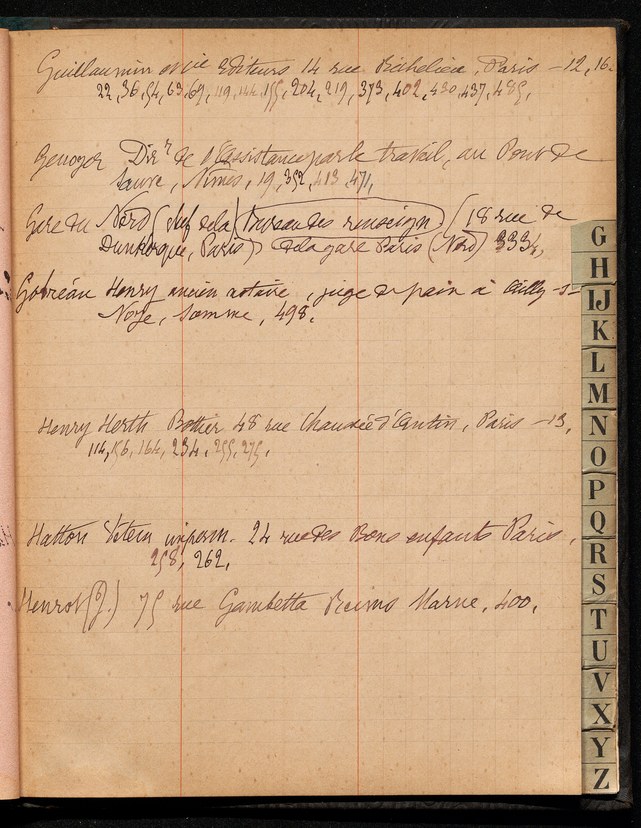 Guillaumin et Cie Editeurs 14 rue Richelieu, Paris – 12, 16,
22, 36, 54, 63, 69, 119, 144, 155, 204, 219, 373, 402, 430, 437, 485,
Dir r de l'Assistance par le travail, au Pont de
Nîmes, 19, 352, 413, 471,
Gare du Nord (chef de la (bureau des renseign) (18 rue de
Dunkerque, Paris) de la gare Paris (Nord) 333,
Henry ancien notaire, juge de paix à Ailly-s-
Noye, Somme, 498.
Henry Herth Bottier 48 rue Chaussée d'Antin, Paris – 13,
114, 156, 164, 234, 255, 275,
Hatton 24 rue des Bons enfants Paris,
258, 262,
Henrot (J.) 75 rue Gambetta Reims Marne, 400,
G
H
IJ
K
L
M
N
O
P
Q
R
S
T
U
V
X
Y
Z